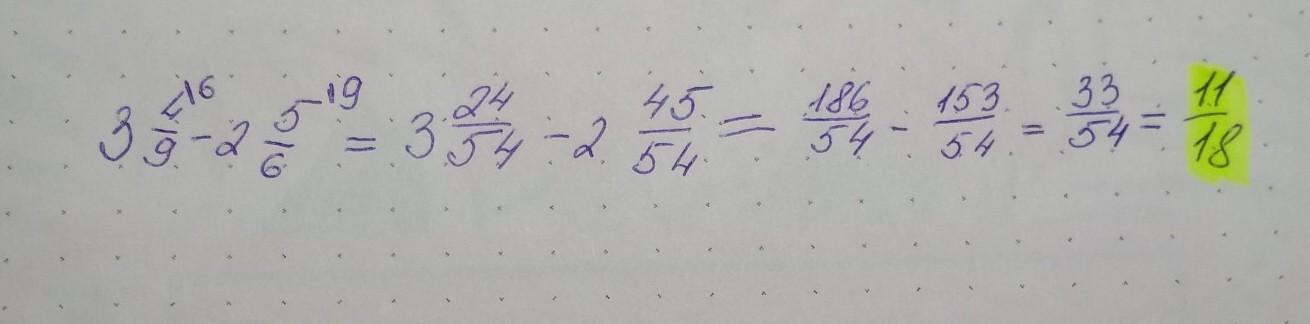 3 4/9 \6 - 2 5/6 \9 = 3 24/54 - 2 45/54 = 186/54 - 153/54 = 33/54 = 11/18